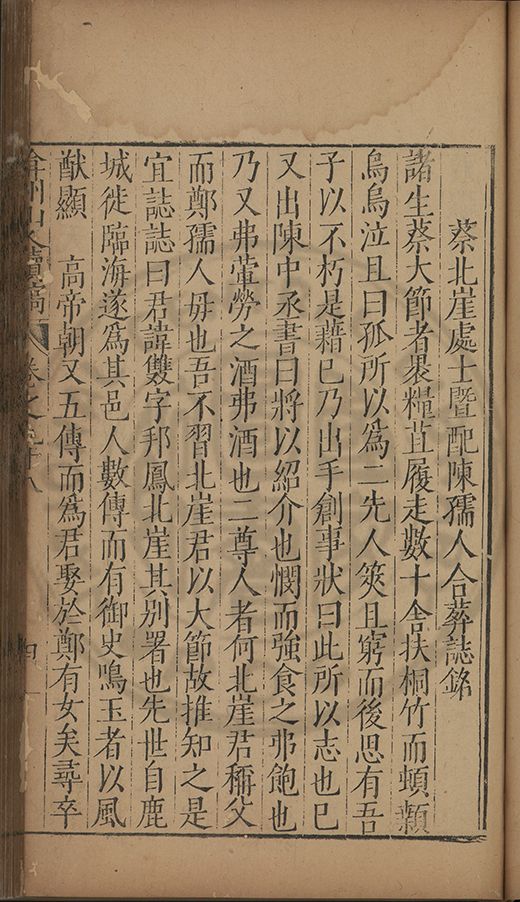 蔡北崖處士暨配陳孺人合葬誌銘
諸生蔡大節者褁糧苴履走數十舍扶桐竹而頓顙
烏烏泣且曰孤所以爲二先人筴且窮而後思有吾
子以不朽是藉已乃出手創事狀曰此所以志也已
又出陳中丞書曰將以紹介也憫而強食之弗飽也
乃又弗葷勞之酒弗酒也二尊人者何北崖君稱父
而鄭孺人毋也吾不習北崖君以大節故推知之是
宜誌誌曰君諱雙字邦鳳北崖其別署也先世自鹿
城徙臨海遂爲其邑人數傳而有御史鳴玉者以風
猷顯 高帝朝又五傳而爲君娶於鄭有女矣尋卒
弇州山人續稿 卷之 十八 四